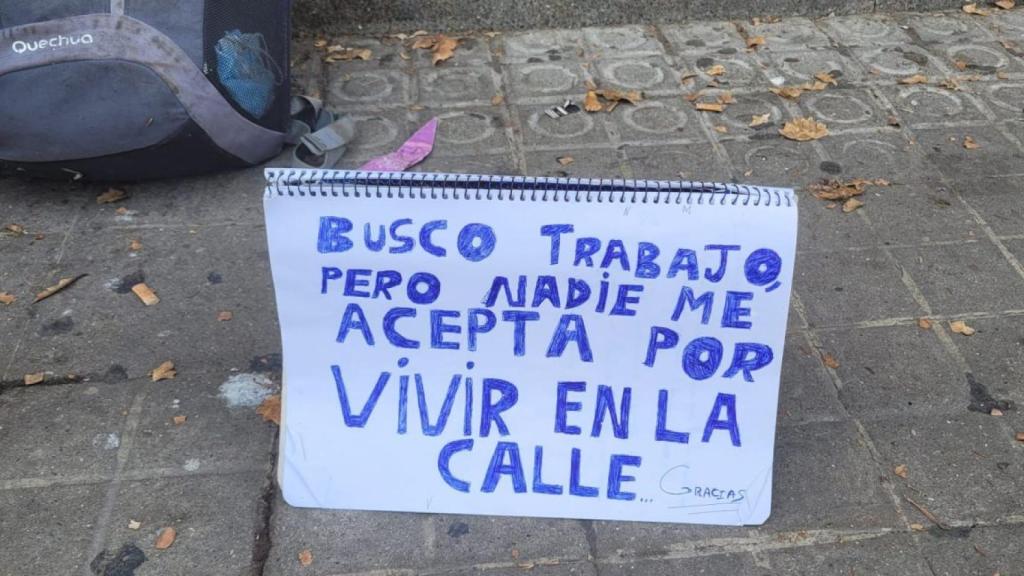 Quechua
BUSCO TRABAJO,
PERO NADiE ME
ACEPTA POR
ViViR EN LA
CALLE... GRACIAS